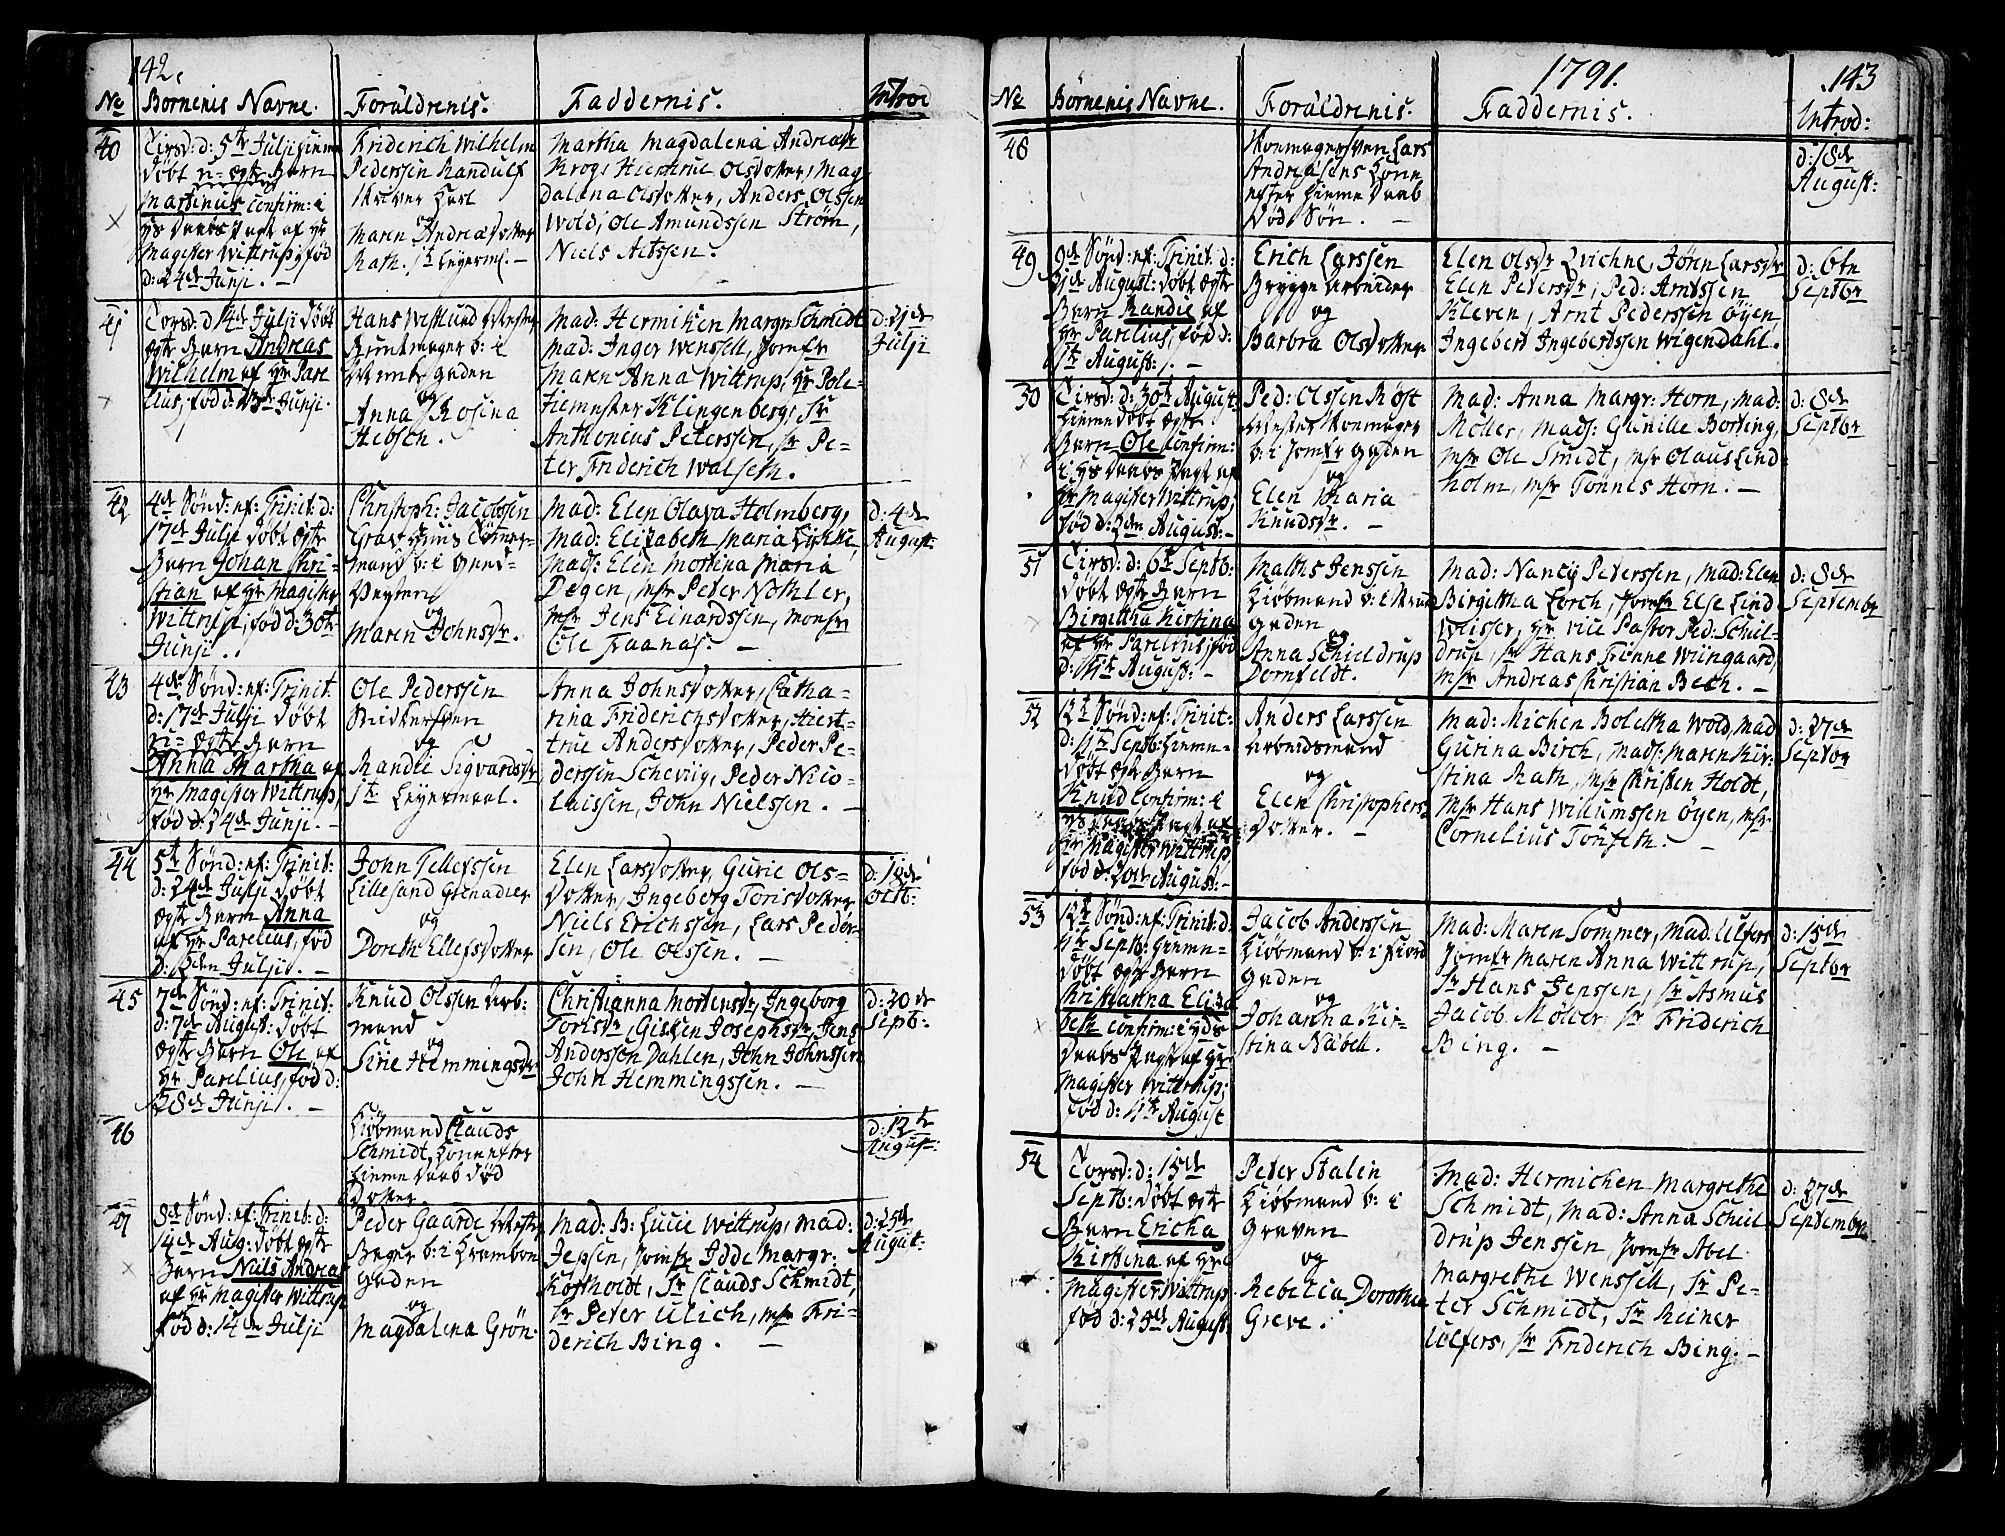 142.
No Børnenis Navne. Forældrenis. Faddernis. Introd
40
Tirsd: d: 5te Julji hiemme
døbt u-ægte Barn
Martinus confirm: i
hs daabs Pagt af Hr
Magister Wittrup, fød
d: 24de Junji. –
Friderich Wilhelm
Pederssen Randulf
Skriver Karl
og
Maren Andreædotter
Rath. 1te Leyerml. –
Martha Magdalena Andreæ
Krog, Hiertrue Olsdotter, Mag
dalena Olsdotter, Anders Olssen
Wold, Ole Amundssen Strøm,
Niels
41
Torsd: d: 14de Julji døbt
ægte Barn Andreas
Wilhelm af Hr Pare
lius, fød d: 23de Junji.
Hans Westlund Mester
Buntmager b: i
gaden
og
Anna Rosina
Hebsch.
Mad: Hermiken Margr: Schmidt
Mad: Inger Wensell, Jomfr
Maren Anna Wittrup, Hr Poli-
tiemester Klingenberg, Sr
Anthonius Peterssen, Sr Pe-
ter Friderich Walseth.
d: 21de
Julji
42
4de Sønd: ef: Trinit: d:
17de Julji døbt ægte
Barn Johan Chri-
stian af Hr Magister
Wittrup, fød d: 30te
Junji. .
Christoph: Jacobssen
Grav
mand b: i
og
Maren Johnsdr.
Mad: Elen Olava Holmberg,
Mad: Elisabeth Maria Lykke,
Mad: Elen Mortina Maria
Degen, Msr Peter Nohler,
Msr Jens Einardssen, Monsr
Ole Faanas. –
d: 4de
August:
43
4de Sønd: ef: Trinit.
d: 17de Julji døbt
u-ægte Barn
Anna Martha af
Hr Magister Wittrup,
fød d: 24de Junji. –
Ole Pederssen
og
Randi Sigvardsdr
1te Leyermaal.
Anna Johnsdotter, Catha-
rina Friderichsdotter, Hiert-
true Andersdotter, Peder Pe-
derssen Scheviig, Peder Nico-
laissen, John Nielssen. –
44
5te Sønd: ef: Trinit:
d: 24de Julji døbt
ægte Barn Anna
af Hr Parelius, fød
d: Julji. –
John Tellefssen
Lillesand Grenadier
og
Doreth Ellefsdotter
Elen Larsdotter, Gurie Ols-
dotter, Ingeberg Torisdotter
Niels Erichssen, Lars Peder-
sen, Ole Olssen. –
d: 18de
Octb:
45
7de Sønd: ef: Trinit:
d: 7de August: døbt
ægte Barn Ole af
Hr Parelius, fød d:
28de Junji. –
Knud Olssen Arb:
mand
og
Sirie Hemmingsdr
Christianna Mortensdr, Ingeborg
Torisdr, Gisken Josephsdr, Jens
Anderssen Dahlen, John Johnssen
John Hemmingssen. –
d: 20de
Septb:
46
Kiøbmand Clauds
Schmidt, Kone efter
hieme daab død
Dotter.
d: 12te
August:
47
8de Sønd: ef: Trinit: d:
14de Aug: døbt ægte
Barn Niels Andreas
af Hr Magister Wittrup
fød d: 14de Julji
Peder Gaarde Mester
Bager b: i Kramboe
gaden
og
Magdalena Grøn.
Mad: B: Lucie Wittrup, Mad:
Jepsen, Jomfr Idde Margr:
Kortholdt, Sr Clauds Schmidt,
Sr Peter Ulich, Msr Fri-
derich Bing. –
d: 25de
August:
1791.
.143
No Børnenis Navne. Forældrenis. Faddernis. Introd:
48
Skomagersven Lars
Andreæsens Kone
efter hieme daab
død Søn. –
d: 18de
August:
49
9de Sønd: ef: Trinit: d:
21de August: døbt ægte
Barn Randie af
Hr Parelius, fød d:
1te August:. –
Erich Larssen
Brygge Arbeider
og
Barbra Olsdotter
Elen Olsdr Jørn Larsdr
Elen Petersdr, Ped: Arntssen
Kleven, Arnt Pederssen Øyen,
Ingebert Ingebertssen Wigendahl.
d: 6te
Septbr
50
Tirsd: d: 30te August:
hieme døbt ægte
Barn Ole confirm:
i hs daabs Pagt af
Hr Magister Wittrup,
fød d: 2den August: –
Ped: Olssen Røst
Mester Skomager
b: i Jomfr gaden
og
Elen Maria
Knudsdr. –
Mad: Anna Margr: Horn, Mad:
Möller, Mad: Gunilie Borting,
Msr Ole Smidt, Msr Olaus Lind-
holm, Msr Tønnes Horn. –
d: 8de
Septbr
51
Tirsd: d: 6te Septb:
døbt ægte Barn
Birgitha Kirstina
af Hr Parelius, fød
d: 11te August: –
Mathis Jenssen
Kiøbmand b: i
gaden
og
Anna Schieldrup
Dornfeldt.
Mad: Nancy Peterssen, Mad: Elen
Birgitha Lorch, Jomfr Else Lind
Weisser, Hr vice Pastor Ped: Schiel-
drup, Sr Hans Finne Wiingaard,
Msr Andreas Christian Bech. –
d: 8de
Septembr
52
12te Sønd: ef: Trinit:
d: 11te Septb: hieme-
døbt ægte Barn
Knud confirm: i
hs daabs Pagt af
Hr Magister Wittrup
fød d: 20de August: –
Anders Larssen
Arbeidsmand
og
Elen Christophers
dotter. –
Mad: Michen Boletha Wold, Mad
Gurina Birch, Mad: Maren Kir-
stina Rath, Msr Christen Holdt,
Msr Hans Willumssen Øyen, Msr
Cornelius Tonseth. –
d: 27de
Septbr
53
12te Sønd: ef: Trinit: d:
11te Septb: hieme-
døbt ægte Barn
Christianna Eliza
beth confirm: i hds
daabs Pagt af Hr
Magister Wittrup,
fød d: 11te August
Jacob Anderssen
Kiøbmand b: i Fiord
gaden
og
Johanna Kir-
stina Näbell.
Mad: Maren Sommer, Mad: Ulfers
Jomfr Maren Anna Wittrup,
Sr Hans Jenssen, Sr Asmus
Jacob Möller, Sr Friderich
Bing. –
d: 15de
Septbr
54
Torsd: d: 15de
Septb: døbt ægte
Barn Ericha
Kirstina af Hr
Magister Wittrup
fød d: 25de August:
Peter Stalin
Kiøbmand b: i
Graven
og
Rebecca Dorothea
Greve.
Mad: Hermichen Margrethe
Schmidt, Mad: Anna Schiel
drup Jenssen, Jomfr Abel
Margrethe Wensell, Sr Pe-
ter Schmidt, Sr Reiner
Ulfers, Sr Friderich Bing. –
d: 27de
Septembr